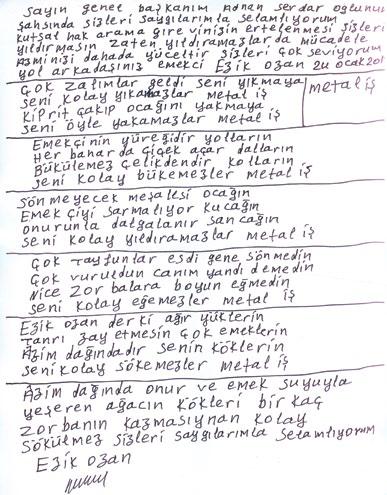 Sayın genel başkanım Adnan Serdar oğlunun
şahsında sizleri saygılarımla selamlıyorum
kutsal hak arama girevinizin ertelenmesi sizleri
yıldırmasın zaten yıldıramazlar da mücadele
azminizi dahada yüceltir sizleri çok seviyorum
yol arkadaşınız emekçi Ezik ozan 24 ocak 201
Çok zalimlar geldi seni yıkmaya
seni kolay yıkamazlar metal iş
Kiprit çakıp ocağını yakmaya
seni öyle yakamazlar metal iş
metal iş
Emekçinin yüreğidir yolların
Her baharda çiçek açar dalların
Bükülemez çeliktendir kolların
seni kolay bükemezler metal iş
Sönmeyecek meşalesi ocağın
Emekçiyi sarmalıyor kucağın
onurunla dalgalanır sancağın
seni kolay yıldıramazlar metal iş
Çok tayfunlar esdi gene sönmedin
Çok vuruldun canım yandı demedin
Nice zorbalara boyun eğmedin
seni kolay eğemezler metal iş
Ezik ozan der ki ağır yüklerin
Tanrı zay etmesin çok emeklerin
Azim dağındadır senin köklerin
seni kolay sökemezler metal iş
Azim dağında onur ve emek suyuyla
yeşeren ağacın kökleri bir kaç
zorbanın kazmasıynan kolay
sökülmez sizleri saygılarımla selamlıyorum
Ezik ozan